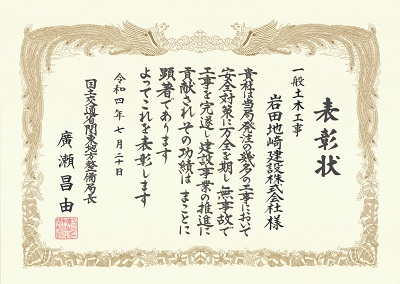 表彰状
一般土木工事
岩田地崎建設株式会社様
貴社は当局発注の幾多の工事において
安全対策に万全を期し無事故で
工事を完遂し建設事業の推進に
貢献されその功績はまことに
顕著であります
よってこれを表彰します
令和四年七月二十日
国土交通省関東地方整備局長
廣瀬昌由